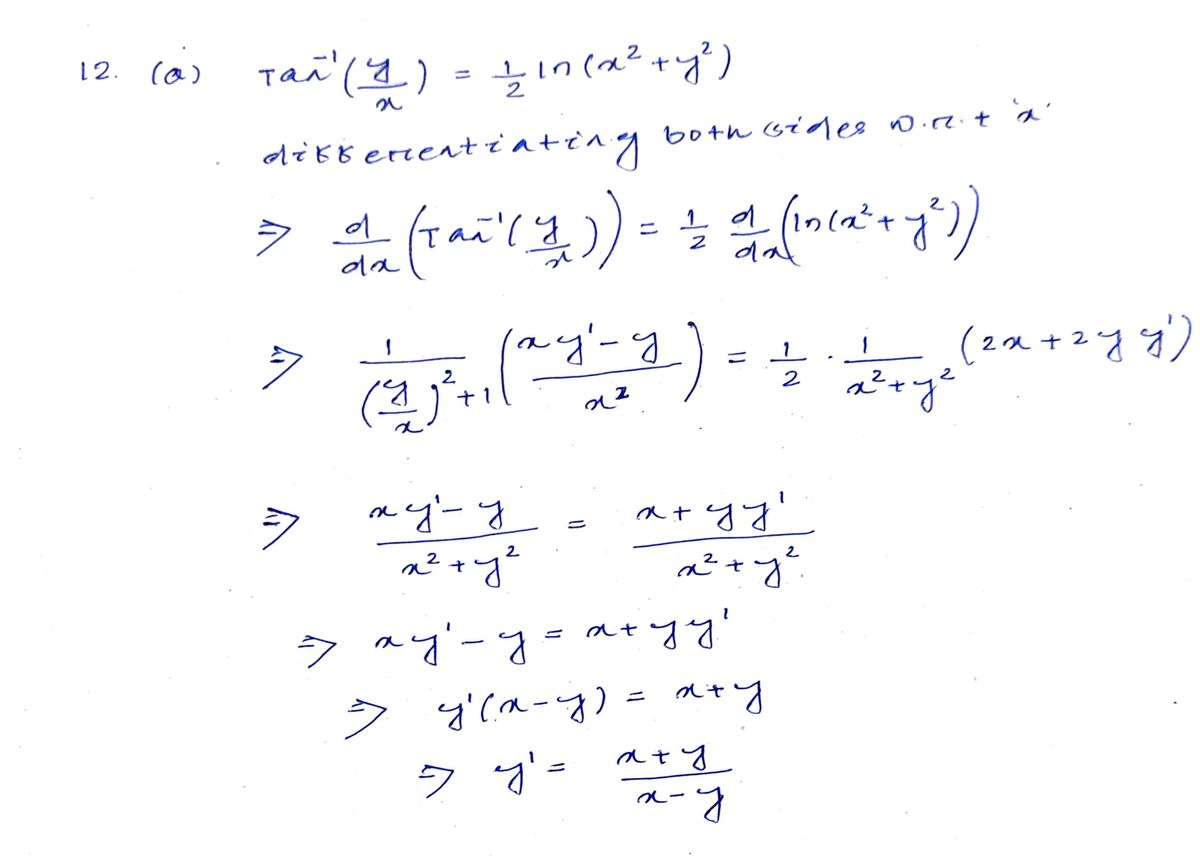 12. (a) Tan⁻¹(y/x) = 1/2 ln(x² + y²)
differentiating both sides w.r.t 'x'
⇒ d/dx (Tan⁻¹(y/x)) = 1/2 d/dx (ln(x² + y²))
⇒ 1/((y/x)² + 1) ((xy' - y)/x²) = 1/2 · 1/(x² + y²) (2x + 2y y')
⇒ (xy' - y)/(x² + y²) = (x + yy')/(x² + y²)
⇒ xy' - y = x + yy'
⇒ y'(x - y) = x + y
⇒ y' = (x + y)/(x - y)